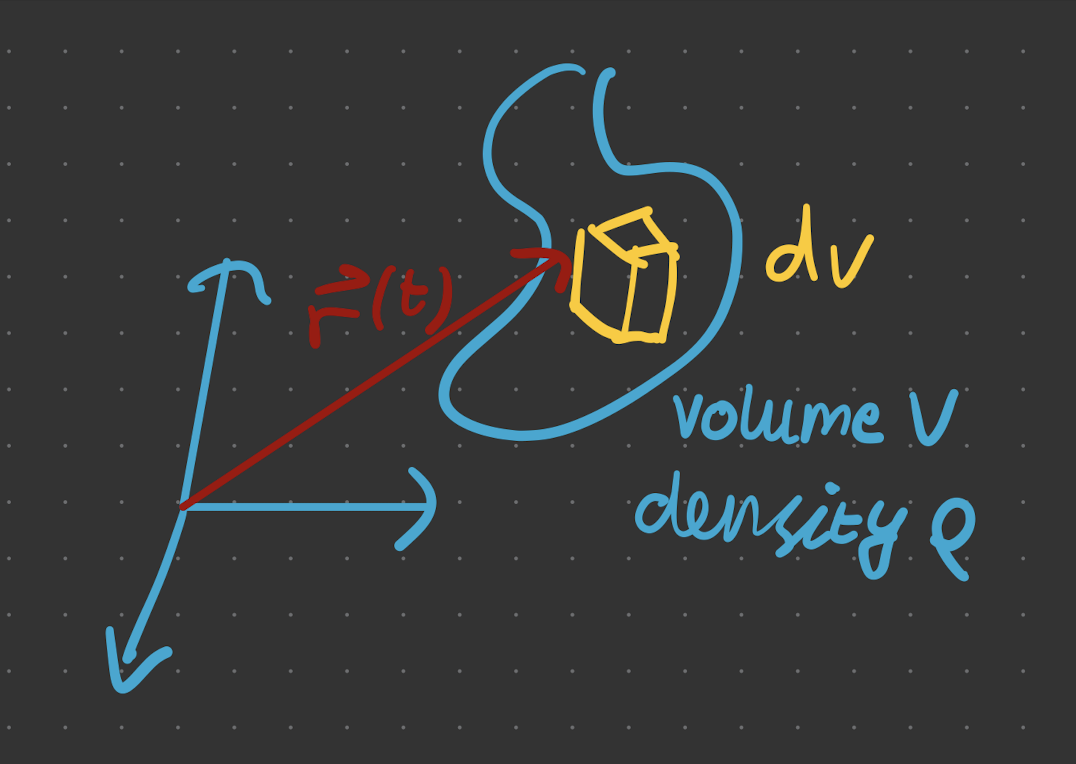 r⃗(t)
dv
volume V
density ρ